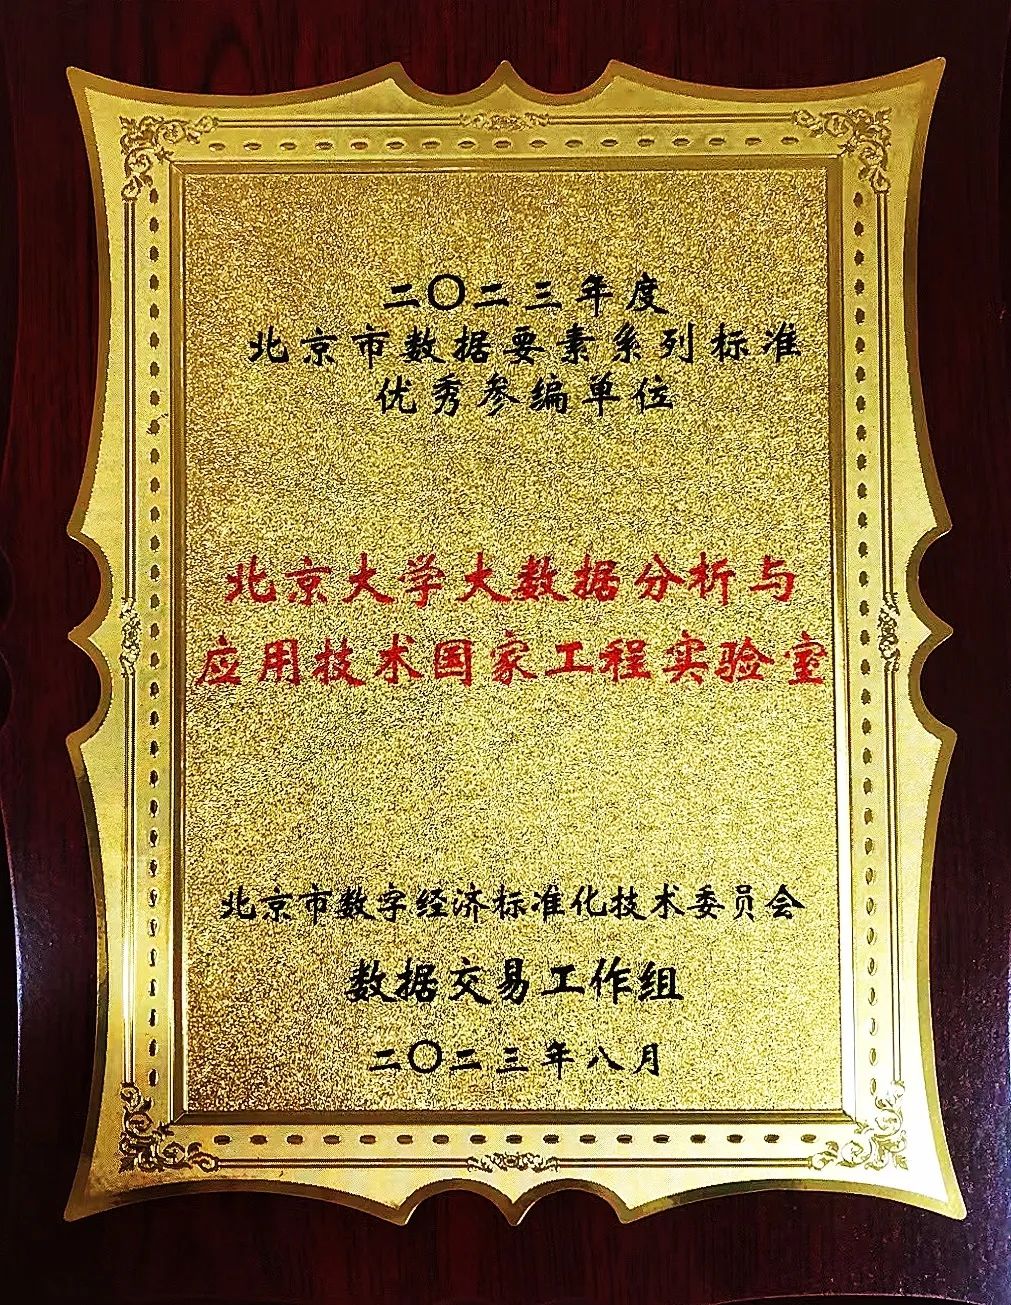 二〇二三年度
北京市数据要素系列标准
优秀参编单位
北京大学大数据分析与
应用技术国家工程实验室
北京市数字经济标准化技术委员会
数据交易工作组
二〇二三年八月